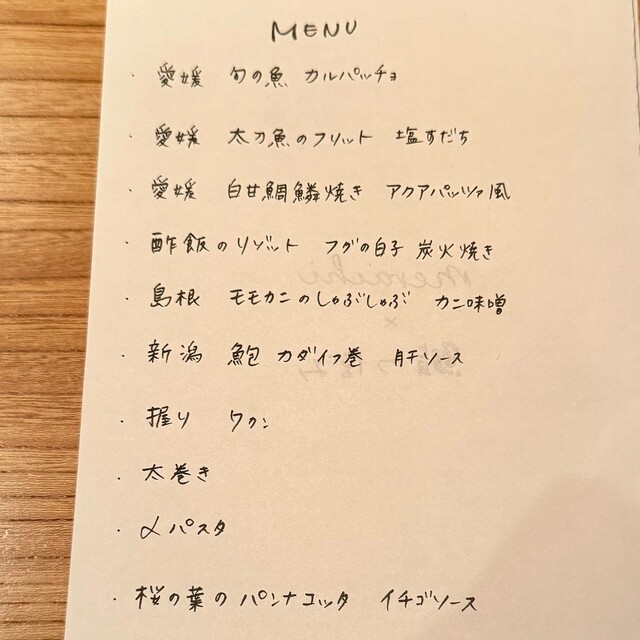 MENU
・愛媛 旬の魚 カルパッチョ
・愛媛 太刀魚のフリット 塩すだち
・愛媛 白甘鯛鱗焼き アクアパッツァ風
・酢飯のリゾット フグの白子 炭火焼き
・島根 モモカニのしゃぶしゃぶ カニ味噌
・新潟 鮑 カダイフ巻 肝ソース
・握り 7カン
・太巻き
・〆パスタ
・桜の葉のパンナコッタ イチゴソース